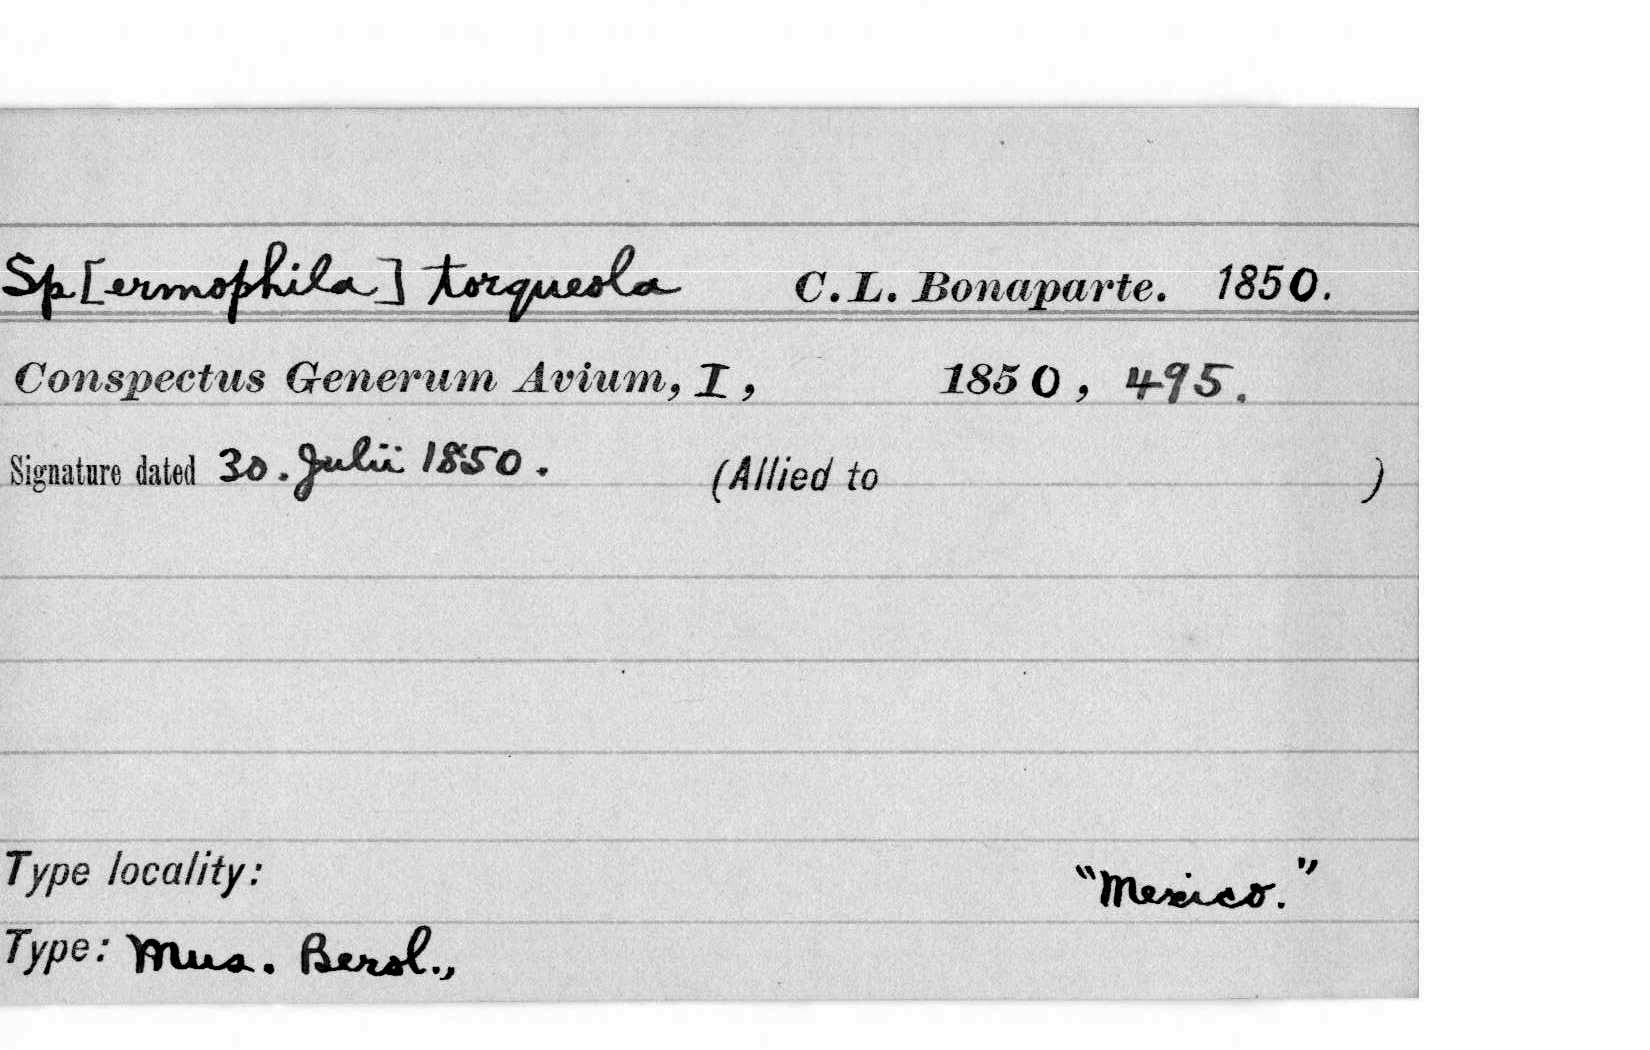 Sp[ermophila] torqueola C. L. Bonaparte. 1850.
Conspectus Generum Avium, I, 1850, 495.
Signature dated 30. Julii 1850. (Allied to )
Type locality: "Mexico."
Type: Mus. Berol.,